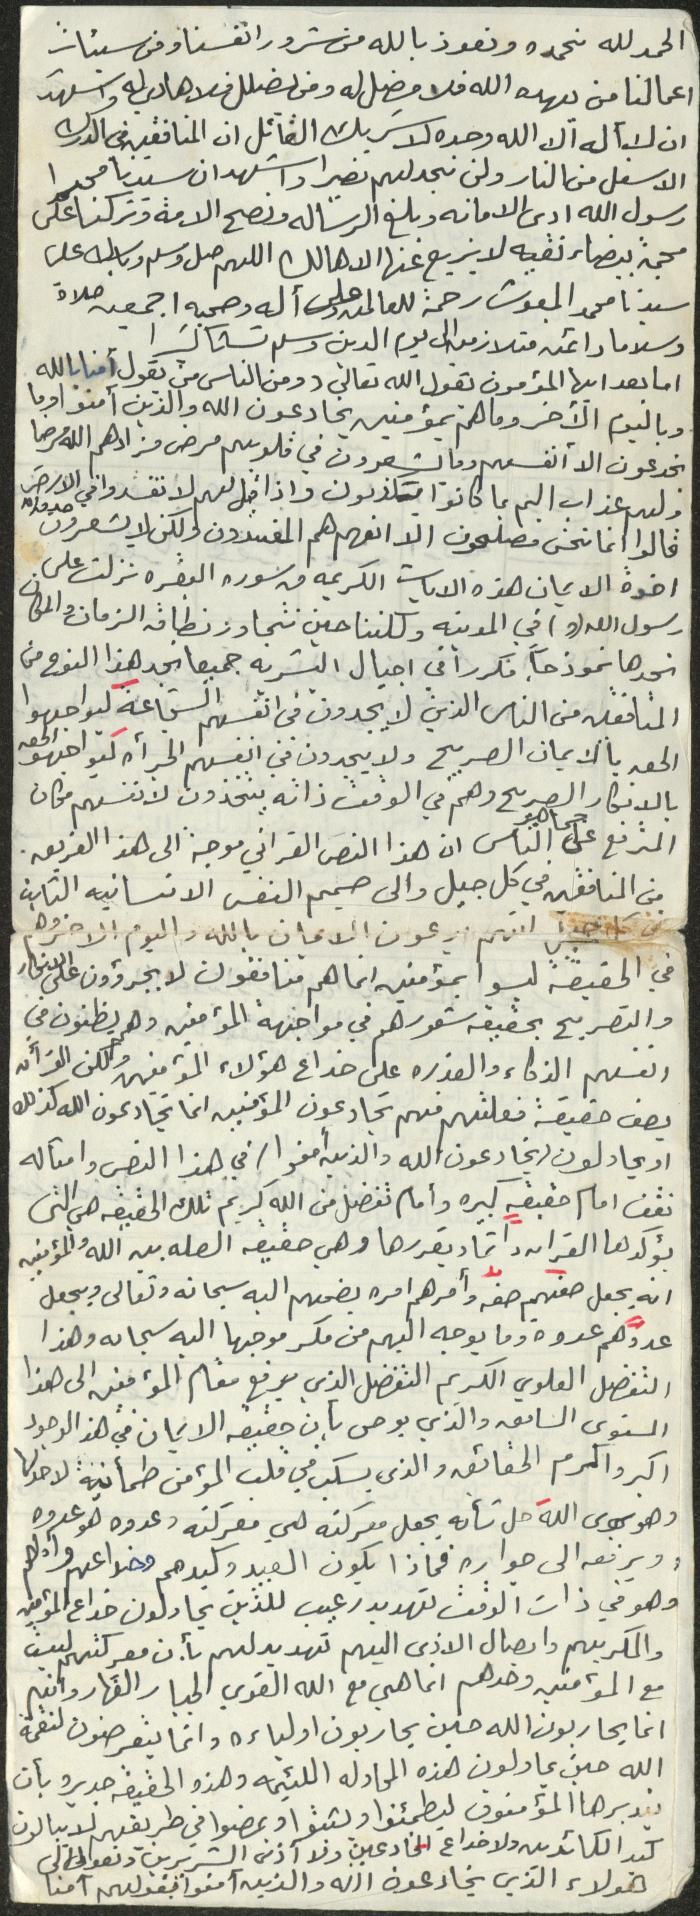 الحمد لله نحمده ونعوذ بالله من شرور انفسنا ومن سيئات
اعمالنا من يهده الله فلا مضل له ومن يضلل فلا هادي له واشهد
ان لا أله ألا الله وحده لا شريك القائل ان المنافقين في الدرك
الاسفل من النار ولن تجد لهم نصيرا واشهد ان سيدنا محمدا
رسول الله ادى الامانه وبلغ الرساله ونصح الامة وتركنا على
محجة بيضاء نقيه لا يزيغ عنها الا هالك اللهم صل وسلم وبارك على
سيدنا محمد المبعوث رحمة للعالمين وعلى أله وصحبه اجمعين صلاة
وسلاما دائمه متلازمين الى يوم الدين وسلم تسلما كثيرا
اما بعد ايها المؤمنون يقول الله تعالى ومن الناس من يقول أمنا بالله
وباليوم الأخر وماهم بمؤمنين يخادعون الله والذين أمنوا وما
يخدعون الا أنفسهم وما يشعرون في قلوبهم مرض فزادهم الله مرضا
ولهم عذاب اليم بما كانوا يكذبون واذا قيل لهم لا تفسدوا في الارض
قالوا انما نحن مصلحون الا انهم هم المفسدون ولكن لا يشعرون
اخوة الايمان هذه الايات الكريمه من سوره البقره نزلت على
رسول الله (ص) في المدينه ولكننا حين نتجاوز نطاق الزمان والمكان
نجدها نموذجاً مكرراً في اجيال البشريه جميعا نجد هذا النوع من
المنافقين من الناس الذين لا يجدون في انفسهم الشجاعة ليواجهوا
الحق بالايمان الصريح ولا يجدون في انفسهم الجرأه ليواجهوا الحق
بالانكار الصريح وهم في الوقت ذاته يتخذون لانفسهم مكان
المترفع على جماهير الناس ان هذا النص القرأني موجة الى هذا الفريق
من المنافقين في كل جيل والى صميم النفس الانسانيه الثابت
في كل جيل انهم يدعون الايمان بالله واليوم الاخر وهم
في الحقيقة ليسوا بمؤمنين انما هم منافقون لا يجرؤون على الانكار
والتصريح بحقيقه شعورهم في مواجهة المؤمنين وهم يظنون في
انفسهم الذكاء والقدره على خداع هؤلاء المؤمنين ولكن القرأن
يصف حقيقة فعلتهم فهم لا يخادعون المؤمنين انما يخادعون الله كذلك
او يحاولون (يخادعون الله والذين أمنوا) في هذا النص وامثاله
نقف امام حقيقه كبيره وأمام تفضل من الله كريم تلك الحقيقه هي التي
يؤكدها القرأن دائما ويقررها وهي حقيقه الصله بين الله والمؤمنين
انه يجعل صفهم صفه وأمرهم امره يضمهم اليه سبحانه وتعالى ويجعل
عدوهم عدوه وما يوجه اليهم من مكر موجها اليه سبحانه وهذا
التفضل العلوي الكريم التفضل الذي يرفع مقام المؤمنين الى هذا
المستوى السامق والذي يوحى بأن حقيقه الايمان في هذا الوجود
اكبر واكرم الحقائق والذي يسكب في قلب المؤمن طمأنينة لا حد لها
وهو يرى الله جل شأنه يجعل معركته هي معركته وعدوه هو عدوه
ويرفعه الى جواره فماذا يكون العبيد وكيدهم وخداعهم وأذاهم
وهو في ذات الوقت تهديد رعيب للذين يحاولون خداع المؤمنين
والمكر بهم وايصال الاذى اليهم تهديد لهم بأن معركتهم ليست
مع المؤمنين وحدهم انما هي مع الله القوي الجبار القهار وأنهم
انما يحاربون الله حين يحاربون اولياءه وانما يتعرضون لنقمة
الله حين يحاولون هذه المحاوله اللئيمه وهذه الحقيقه جديره بأن
يتدبرها المؤمنون ليطمئنوا ويثبتوا ويمضوا في طريقهم لا يبالون
كيد الكائدين ولا خداع الخادعين ولا أذى الشريرين ونعود الى
هؤلاء الذين يخادعون الله والذين أمنوا بقولهم أمنا